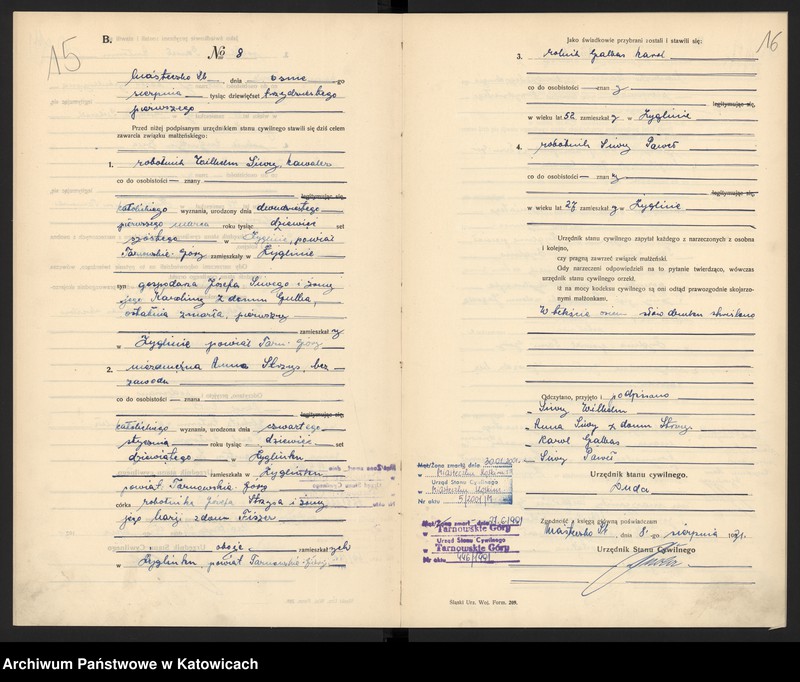 15
B.
№ 8
Miasteczko Śl. , dnia ósme go
sierpnia tysiąc dziewięćset trzydziestego
pierwszego
Przed niżej podpisanym urzędnikiem stanu cywilnego stawili się dziś celem
zawarcia związku małżeńskiego:
1. robotnik Wilhelm Siwy, kawaler
co do osobistości — znany
legitymując się,
katolickiego wyznania, urodzony dnia dwudziestego
pierwszego marca roku tysiąc dziewięć set
szóstego w Żyglinie, powiat
Tarnowskie-Góry zamieszkały w Żyglinie
syn gospodarza Józefa Siwego i żony
jego Karoliny z domu
ostatnia zmarła, pierwszy
zamieszkały
w Żyglinie powiat Tarn. Góry
2. niezamężna Anna Skrzys, bez
zawodu
co do osobistości — znana
legitymując się,
katolickiego wyznania, urodzona dnia czwartego
stycznia roku tysiąc dziewięć set
dziewiątego w Żyglinku
zamieszkała w Żyglinku
powiat Tarnowskie-Góry
córka robotnika Józefa i żony
jego Marji z domu Fiszer
oboje zamieszkałych
w Żyglinku, powiat Tarnowskie-Góry
16
Jako świadkowie przybrani zostali i stawili się:
3. rolnik Galbas Karol
co do osobistości — znany
legitymując się,
w wieku lat 52, zamieszkały w Żyglinie
4. robotnik Siwy Paweł
co do osobistości — znany
legitymując się,
w wieku lat 27 zamieszkały w Żyglinie
Urzędnik stanu cywilnego zapytał każdego z narzeczonych z osobna
i kolejno,
czy pragną zawrzeć związek małżeński.
Gdy narzeczeni odpowiedzieli na to pytanie twierdząco, wówczas
urzędnik stanu cywilnego orzekł,
iż na mocy kodeksu cywilnego są oni odtąd prawozgodnie skojarzo-
nymi małżonkami.
W tekście osiem słów drukem skreślono
Odczytano, przyjęto i podpisano
Siwy Wilhelm
Anna Siwy z domu
Karol Galbas
Siwy Paweł
Urzędnik stanu cywilnego.
Duda
Zgodność z księgą główną poświadczam
Miasteczko Śl. , dnia 8 go sierpnia 1931.
Urzędnik Stanu Cywilnego
Duda
Mąż/Żona zmarł/a dnia 30.01.2001.
w Miasteczku
Urząd Stanu Cywilnego
w Miasteczku Śląskim
Nr aktu 5/2001/M
Mąż/Żona zmarł. dnia 21.6.1991
w Tarnowskie Góry
Urząd Stanu Cywilnego
w Tarnowskie Góry
Nr aktu 446/1991
Śląski Urz. Woj. Form. 209.
Archiwum Państwowe w Katowicach